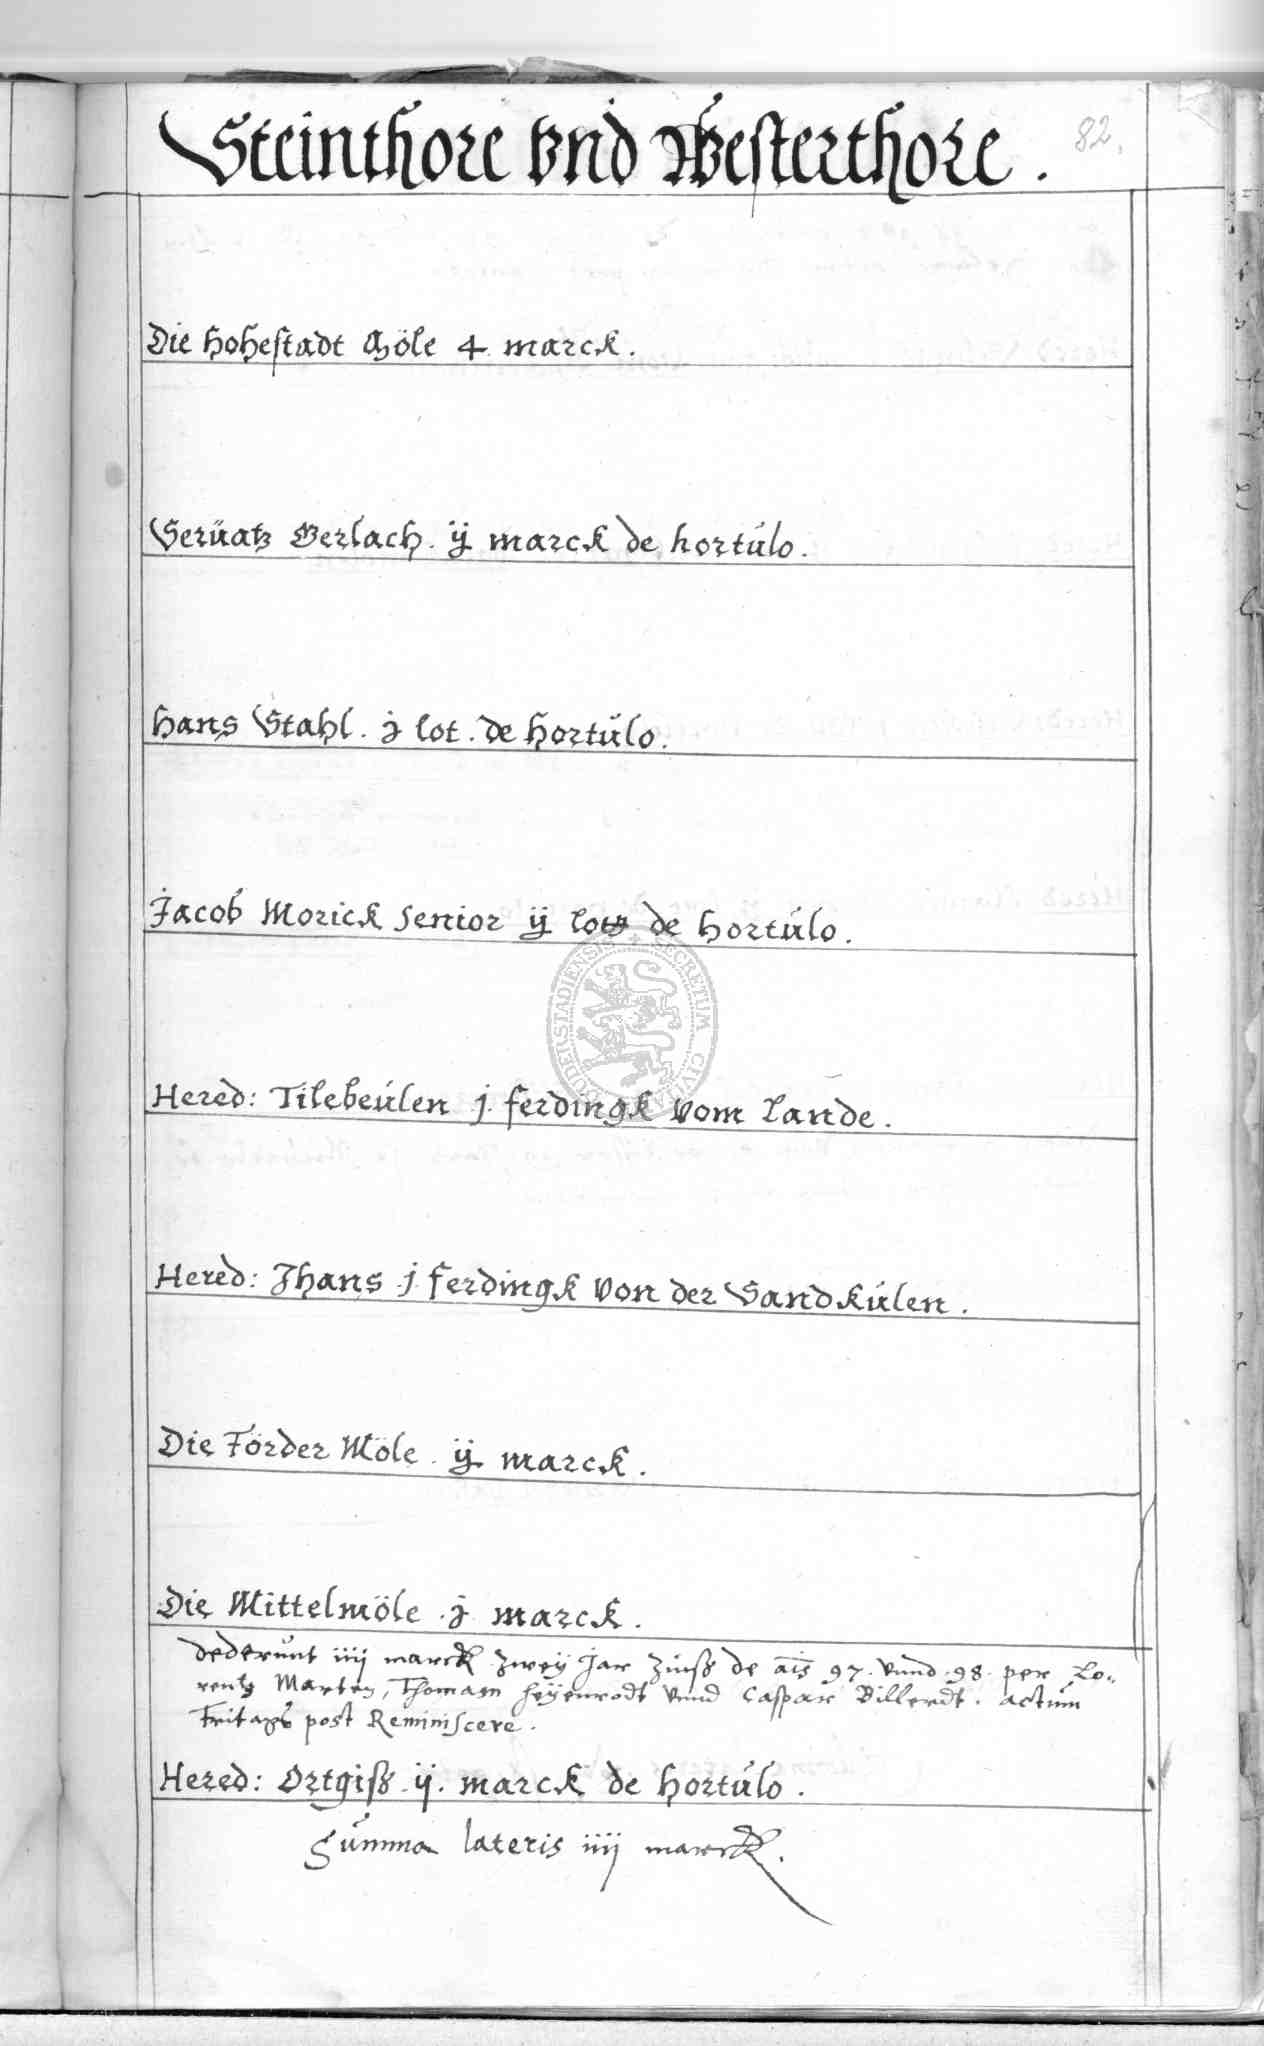 Steinthore vnd Westerthore.
82.
Die Hohestadt Möle 4 marck.
Seruatz Gerlach. ij marck de hortulo.
Hans Stahl. j lot. de hortulo.
Jacob Morick senior ij lotz de hortulo.
Hered: Tilebeulen j ferdingk vom Lande.
Hered: Jhans j ferdingk von der Sandkulen.
Die Förder Möle. ij marck.
Die Mittelmöle. j marck.
dederunt iiij marck zwey Jar zinß de ais 97. vnnd. 98. per Lo-
rentz Marten, Thomam Heyenrodt vnnd Caspar Billerdt. actum
post Reminiscere.
Hered: Ortgiß. ij. marck de hortulo.
Summa lateris iiij marck.
SECRETUM CIVI DUDERSTADIENSIS